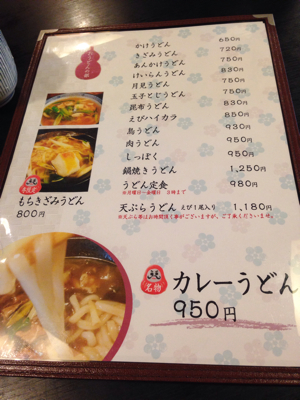 かけうどん 650円
きざみうどん 720円
あんかけうどん 750円
けいらんうどん 830円
月見うどん 750円
玉子とじうどん
昆布うどん 830円
えびハイカラ 850円
鳥うどん 930円
肉うどん 950円
しっぽく 950円
鍋焼きうどん 1,250円
うどん定食 980円
※月曜日〜金曜日 3時まで
天ぷらうどん えび1尾入り 1,180円
※天ぷら等はお時間頂く事がございますが、ご了承くださいませ。
もちきざみうどん
800円
名物
カレーうどん
950円